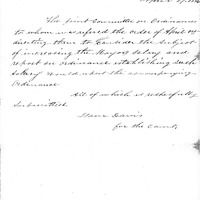 The Joint Committee on Ordinances
to whom was referred the order of
directing them to Consider the Subject
of increasing the Mayors Salary and
report an ordinance establishing such
Salary would report the accompanying
Ordinance
All of which is respectfully
Submitted.
Isaac Davis
for the Comte.